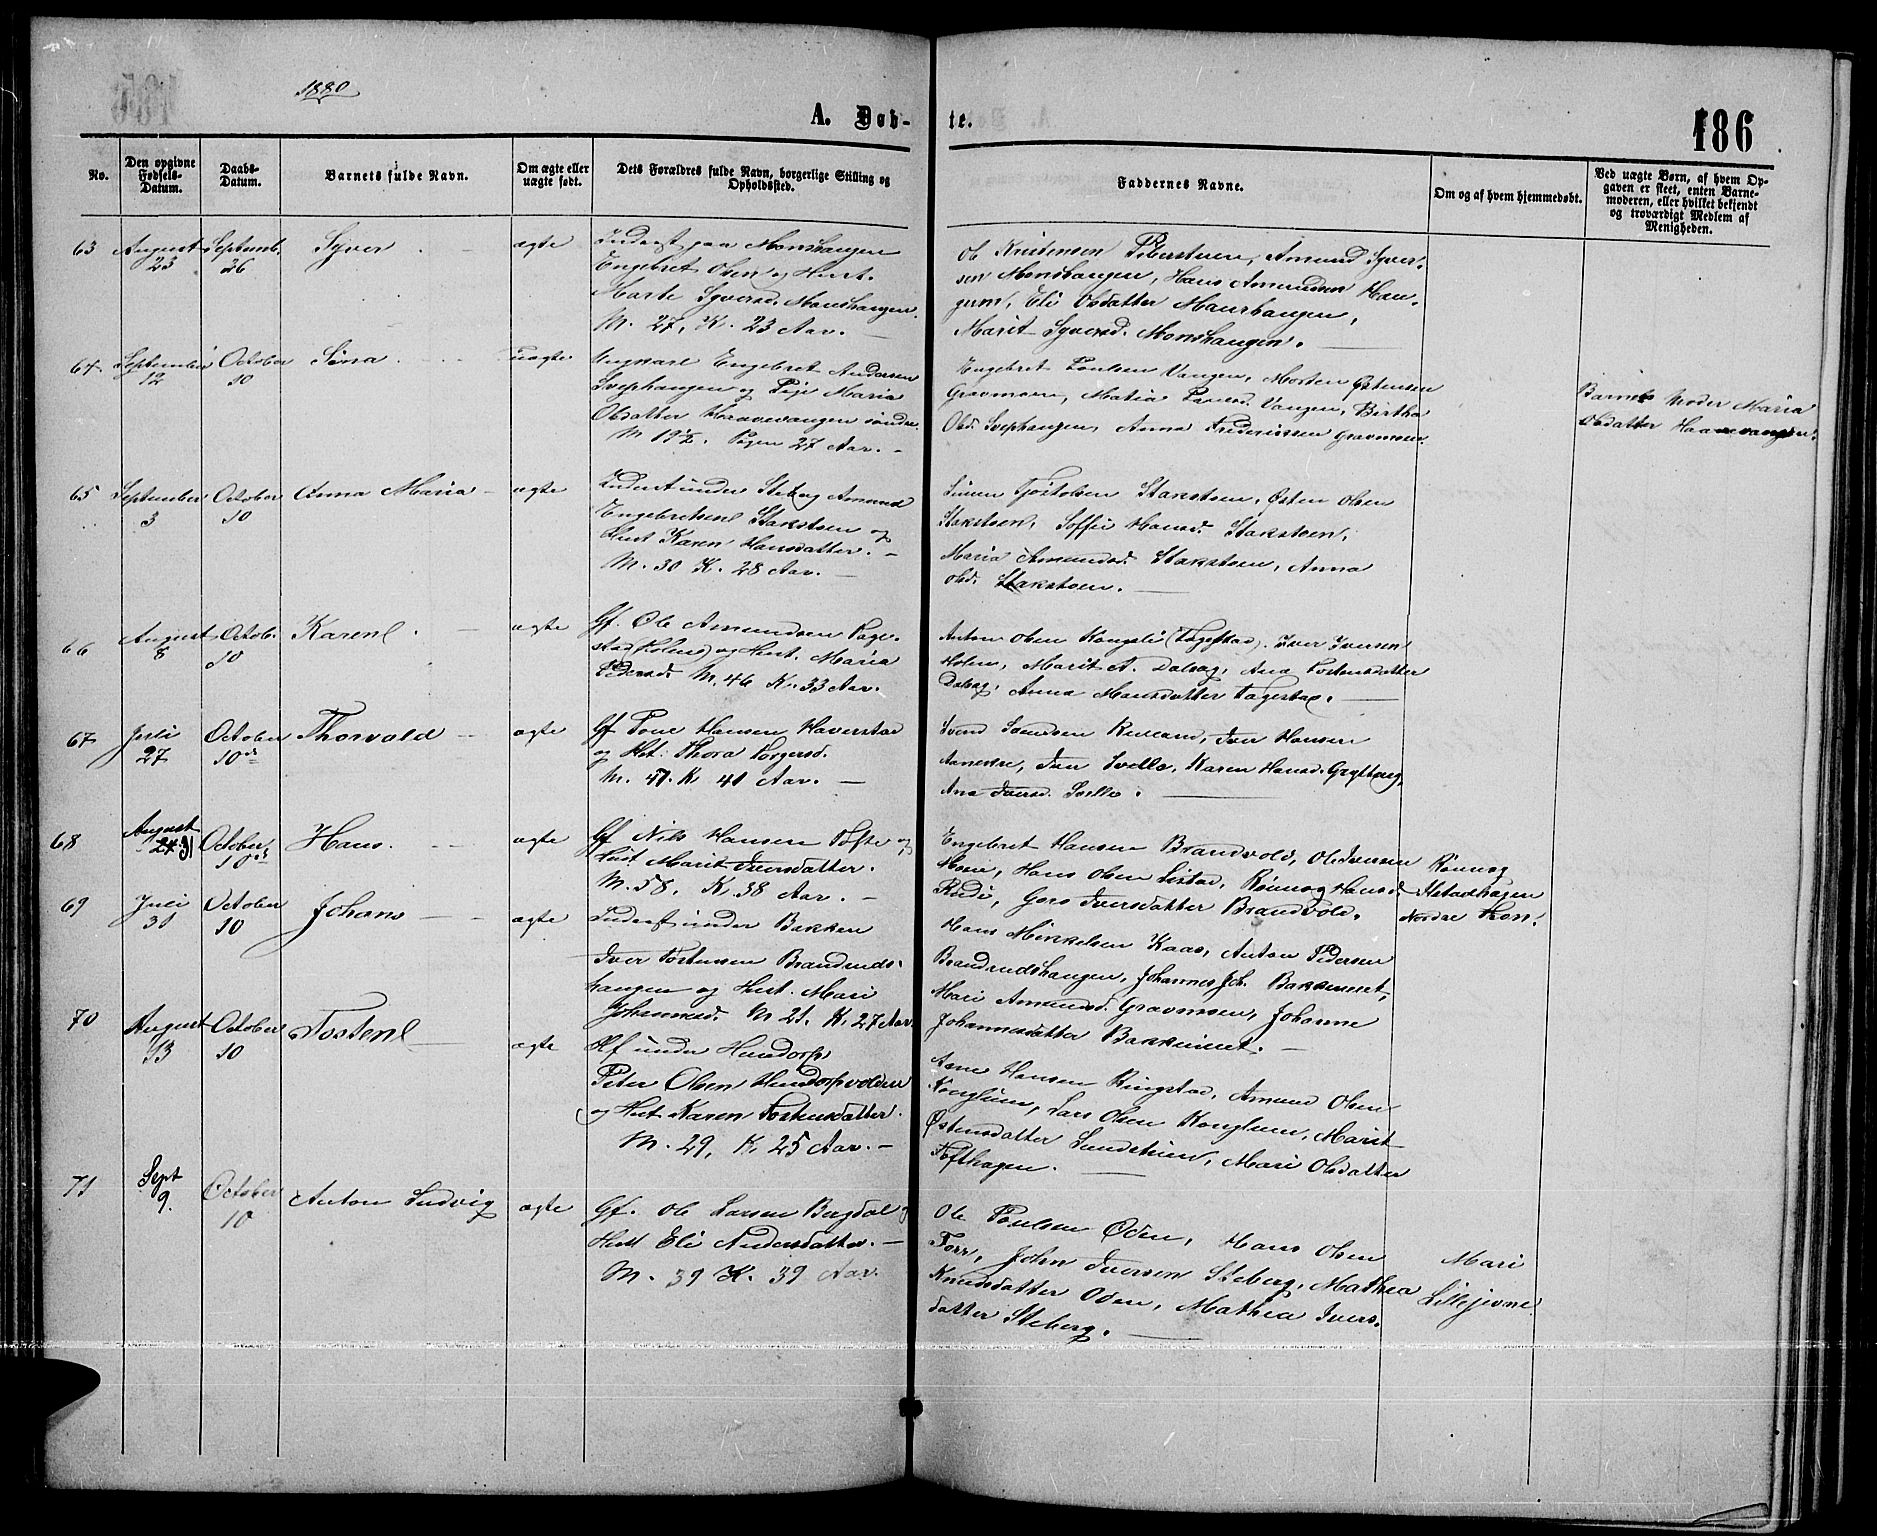 1880
A. Døb-
te.
186
No.
Den opgivne
Fødsels-
Datum.
Daabs-
Datum.
Barnets fulde Navn.
Om ægte eller
uægte født.
Dets Forældres fulde Navn, borgerlige Stilling og
Opholdssted.
Faddernes Navne.
Om og af hvem hjemmedøbt.
Ved uægte Børn, af hvem Op-
gaven er skeet, enten Barne-
moderen, eller hvilket bekjendt
og troværdigt Medlem af
Menigheden.
63
August
23
Septemb.
26
Syver
ægte
Inderst paa Monshaugen
Engebret Olsen og Hust.
Marte Syversd. Monshaugen.
M. 27, K. 23 Aar.
Ol Kristensen Piberstuen, Amund Syver-
sen Monshaugen, Hans Amundsen Hau-
gum, Eli Olsdatter Maurhaugen,
Marit Syversd. Monshaugen.
64
September
12
October
10
Sina
uægte
Ungkarl Engebret Andersen
Svephaugen og Pige Maria
Olsdatter Haavevangen søndre.
M 19½. Pigen 27 Aar.
Engebret Poulsen Vangen, Morten Østensen
Gravmoen, Matia Poulsd. Vangen, Birtha
Olsd. Svephaugen, Anna Frederiksen Gravmoen.
Barnets Moder Maria
Olsdatter Haavevangen.
65
September
3
October
10
Anna Maria
ægte
Inderst under Steberg Amund
Engebretsen Stakstoen og
Hust Karen Hansdatter.
M. 30 K. 28 Aar.
Simen Tostolsen Stakstoen, Østen Olsen
Stakstoen, Soffie Hansd. Stakstoen,
Maria Amundsd. Stakstoen, Anna
Olsd. Stakstoen.
66
August
8
Octob.
10
Karen
ægte
Gf. Ole Amundsen Fage-
stad (Holen) og Hust. Maria
Pedersd. M. 46 K. 33 Aar.
Anton Olsen Kongsli (Fagestad). Iver Iversen
Holen, Marit A. Dalseg, Ana Tostensdatter
Dalseg, Anna Hansdatter Fagestad.
67
Juli
27
October
10de
Thorvald
ægte
Gf Poul Hansen Haverstad
og Hst. Thora Torgersd.
M. 41. K 41 Aar.
Svend Svendsen Kilsand, Iver Hansen
Iver Svelle, Karen Hansd. Grytberg,
Ana Iversd. Svelle.
68
August
31
October
10de
Hans.
ægte
Gf Nils Hansen Tofte og
Hust Marit Iversdatter.
M. 58, K. 38 Aar.
Engebret Hansen Brandvold, Ole Iversen
Moen, Hans Olsen Listad, Rønnog Hansd
Rudi, Goro Iversdatter Brandvold.
Rønnog
Ulstadhagen
Nordre Fron.
69
Juli
31
October
10
Johans
ægte
Inderst under Bakken
Iver Tostensen Brandruds-
haugen og Hust. Mari
Johannesd. M 21. K. 27 Aar.
Hans Mikkelsen Kaas, Anton Pedersen
Brandrudshaugen, Johannes Joh. Bakkeneset,
Mari Amundsd. Gravmoen, Johanne
Johannesdatter Bakkeneset.
70
August
13
October
10
Tosten
ægte
Hf under Hundorp
Peter Olsen Hundorpvolden
og Hust Karen Tostensdatter.
M. 29, K. 25 Aar.
Arne Hansen Ringstad, Amund Olsen
Konglum, Lars Olsen Konglum, Marit
Østensdatter Sundstuen, Mari Olsdatter
Tofthagen.
71
Sept
9.
October
10
Anton Ludvig
ægte
Gf. Ole Larsen Bergdal og
Hust Eli Andersdatter.
M. 39 K. 39 Aar.
Ole Poulsen Øden, Hans Olsen
Forr, John Iversen Steberg, Mathea
Knudsdatter Oden, Mathea Ivers-
datter Steberg.
Mari
Lillejevne